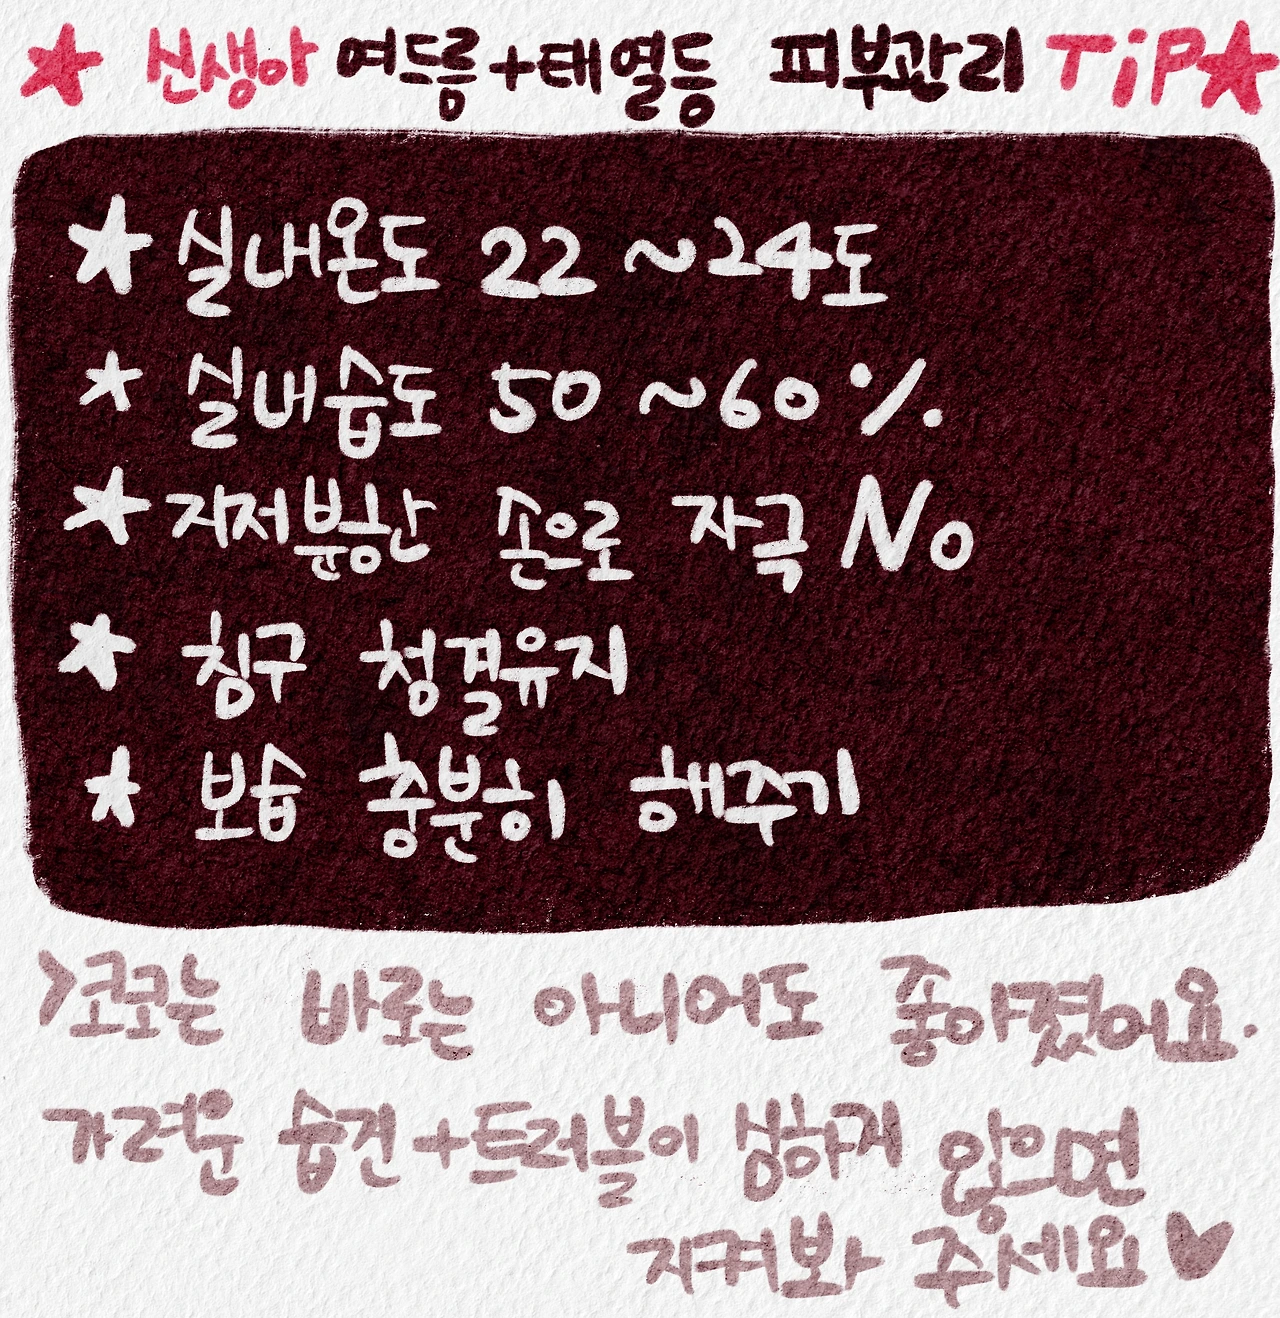 ★ 신생아 여드름+태열등 피부관리 TiP★
★ 실내온도 22 ~24도
★ 실내습도 50 ~60%
★ 지저분한 손으로 자극 No
★ 침구 청결유지
★ 보습 충분히 해주기
>코코는 바로는 아니어도 좋아졌어요.
가려운 습진+트러블이 심하지 않으면
지켜봐 주세요♥